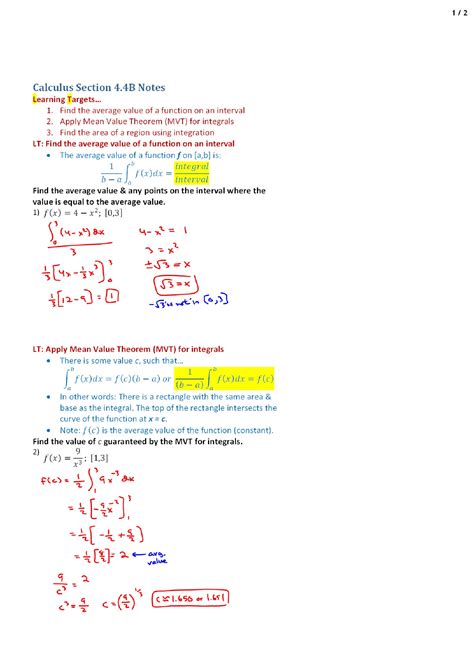 1 / 2
Calculus Section 4.4B Notes
Learning Targets...
1. Find the average value of a function on an interval
2. Apply Mean Value Theorem (MVT) for integrals
3. Find the area of a region using integration
LT: Find the average value of a function on an interval
• The average value of a function f on [a,b] is:
1/(b − a) ∫_a^b f(x)dx = integral/interval
Find the average value & any points on the interval where the
value is equal to the average value.
1) f(x) = 4 − x²; [0,3]
∫_0^3 (4-x²) dx / 3
4-x² = 1
3 = x²
1/3 [4x - 1/3 x³]_0^3
±√3 = x
√3 = x
1/3 [12 - 9] = 1
-√3 is not in [0,3]
LT: Apply Mean Value Theorem (MVT) for integrals
• There is some value c, such that...
∫_a^b f(x)dx = f(c)(b − a) or 1/(b − a) ∫_a^b f(x)dx = f(c)
• In other words: There is a rectangle with the same area &
base as the integral. The top of the rectangle intersects the
curve of the function at x = c.
• Note: f(c) is the average value of the function (constant).
Find the value of c guaranteed by the MVT for integrals.
2) f(x) = 9/x³; [1,3]
f(c) = 1/2 ∫_1^3 9x^-3 dx
= 1/2 [-9/2 x^-2]_1^3
= 1/2 [-1/2 + 9/2]
= 1/2 [8/2] = 2 ← avg. value
9/c³ = 2
c³ = 9/2 c = (9/2)^1/3 c ≅ 1.650 or 1.651